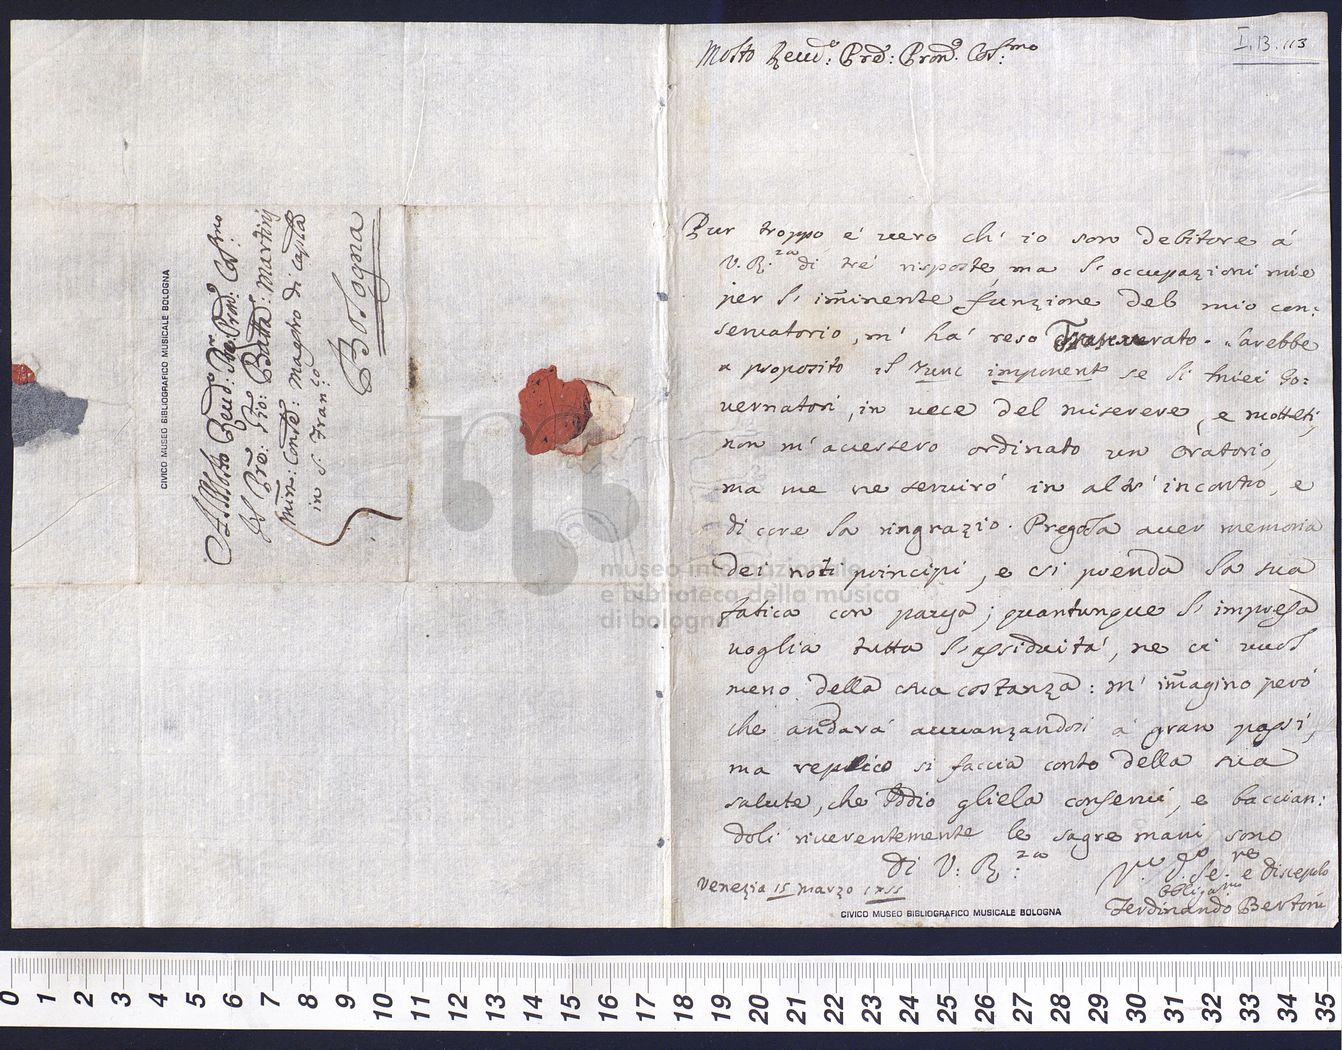 Al Molto Revd.o Pre. Pron. Col.mo
Il Pre. Gio: Batta: Martini
Min: Conle: Maestro di Capla
in S. Fran.co
Bologna
CIVICO MUSEO BIBLIOGRAFICO MUSICALE BOLOGNA
I.13.113
Molto Revd.o: Pre: Pron.e Col.mo
Pur troppo é vero ch' io son debitore á
V. R.za di tré risposte, ma l'occupazioni mie
per l' im̃inente funzione del mio con:
servatorio, m' há reso. Sarebbe
a proposito il Tunc imponent se li miei Go:
vernatori, in vece del miserere, e mottetti,
non m'avessero ordinato un Oratorio,
ma me ne serviró in altr' incontro, e
di core la ringrazio. Pregola aver memoria
dei noti principi, e si prenda la sua
fatica con pausa; quantunque l' impresa
voglia tutta l'assiduità, ne ci vuol
meno della sua costanza: m' im̃agino peró
che andará avvanzandosi á gran passi,
ma replico si faccia conto della sua
salute, che Iddio gliela conservi, e baccian:
doli riverentemente le sagre mani sono
Di V: R:za
Venezia 15 marzo 1755
Se.re e discepolo
obbligat.mo
Ferdinando Bertoni
CIVICO MUSEO BIBLIOGRAFICO MUSICALE BOLOGNA
museo internazionale
e biblioteca della musica
di bologna
0 1 2 3 4 5 6 7 8 9 10 11 12 13 14 15 16 17 18 19 20 21 22 23 24 25 26 27 28 29 30 31 32 33 34 35